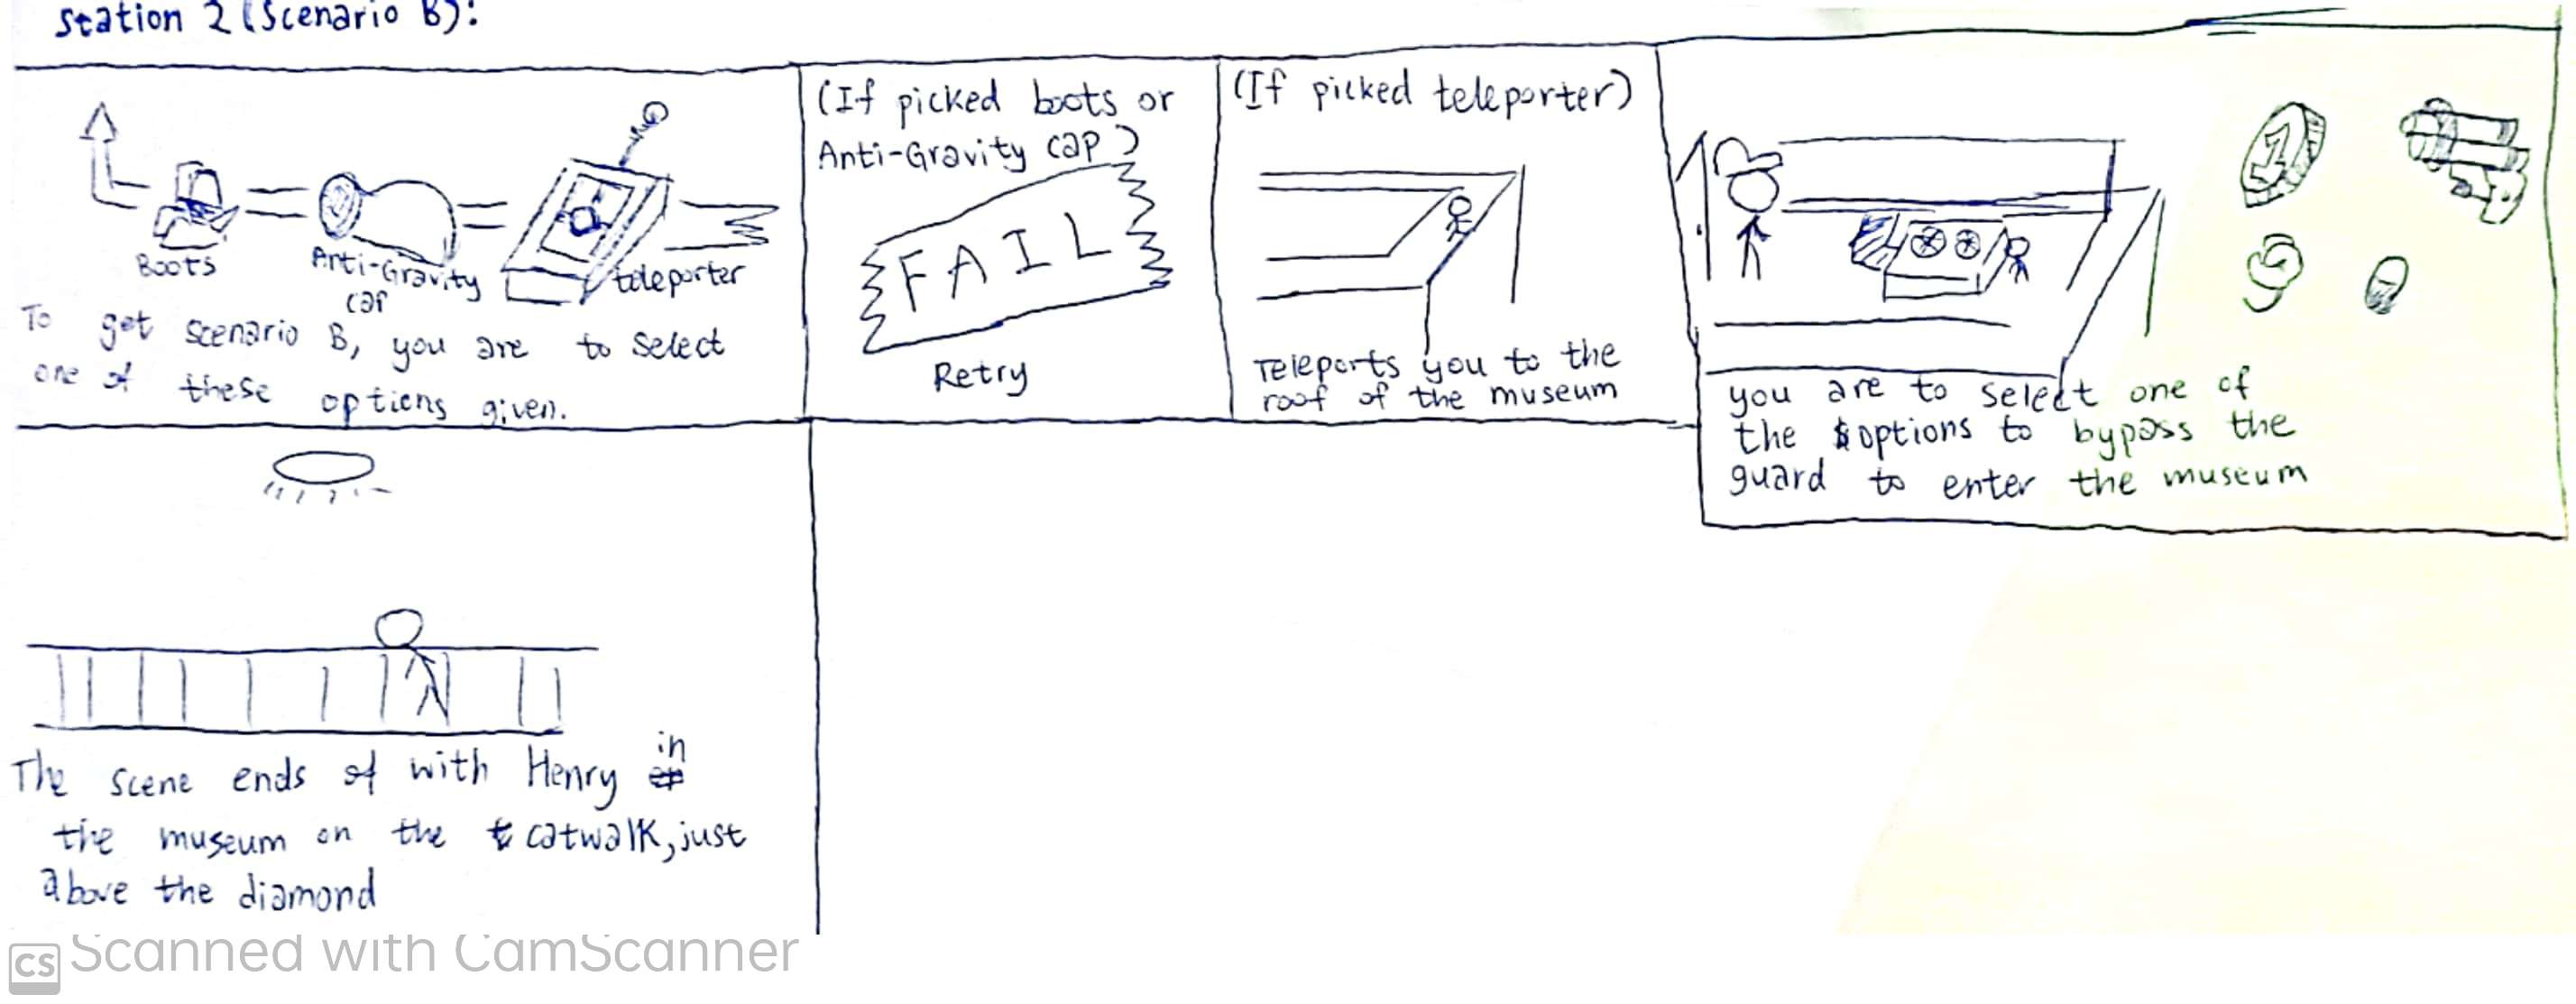 Station 2 (Scenario B):
Boots
Anti-Gravity
cap
teleporter
To get scenario B, you are to select
one of these options given.
(If picked boots or
Anti-Gravity cap)
FAIL
Retry
(If picked teleporter)
Teleports you to the
roof of the museum
1
you are to select one of
the options to bypass the
guard to enter the museum
The scene ends of with Henry in
the museum on the catwalk, just
above the diamond
CS Scanned with CamScanner